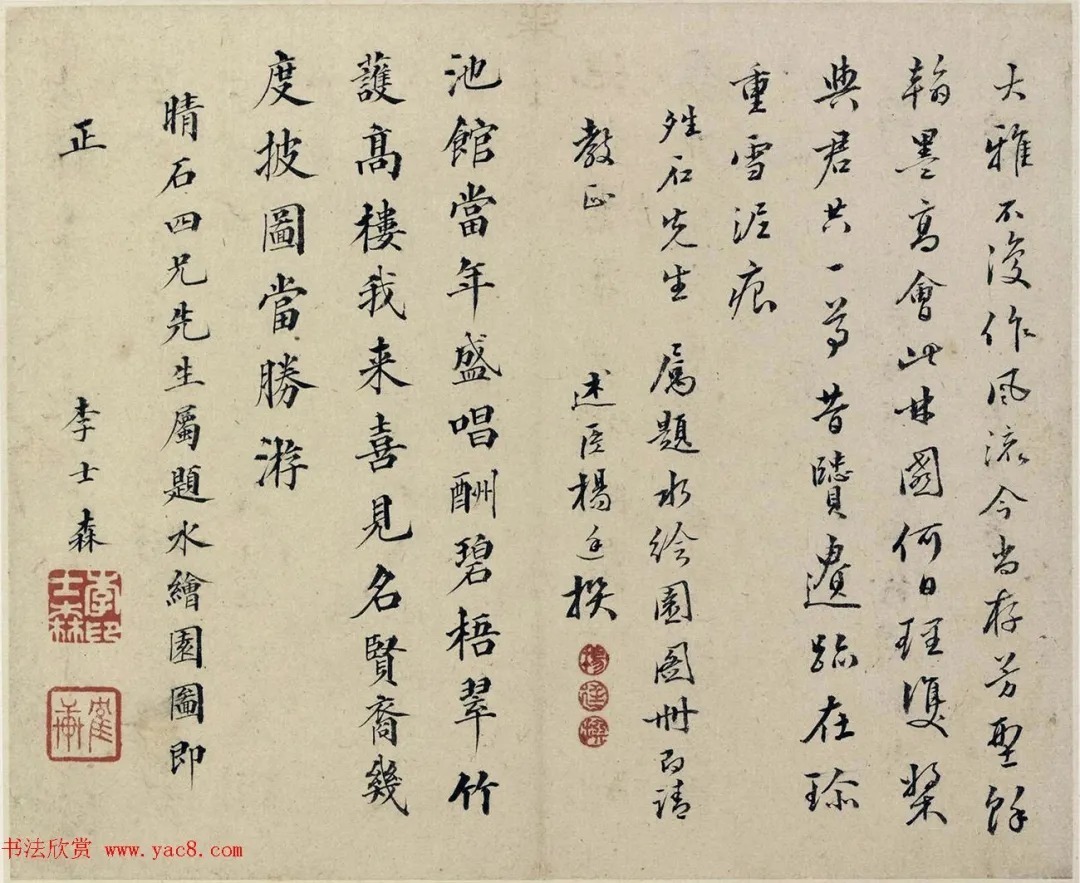 大雅不復作風流今尚存芳型餘
翰墨高會此林園何日理雙槳
與君共一尊昔賢遺跡在珍
重雪泥痕
晴石先生 屬題水繪園圖冊即請
教正 述臣楊廷撰
楊廷撰
池館當年盛唱酬碧梧翠竹
護高樓我来喜見名賢裔幾
度披圖當勝游
晴石四兄先生屬題水繪園圖即
正 李士森
李士森印
书法欣赏 www.yac8.com